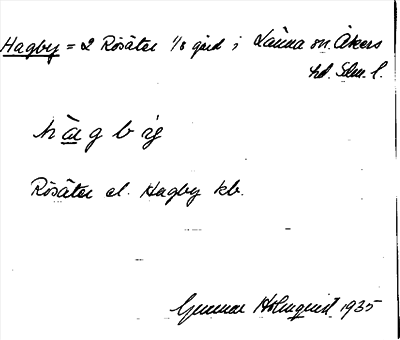 Hagby = 2 Rösäter 1/8 gård i Länna sn. Åkers
hd. Sdm. l.
hagbý
Rösäter el. Hagby kb.
Gunnar Holmquist 1935